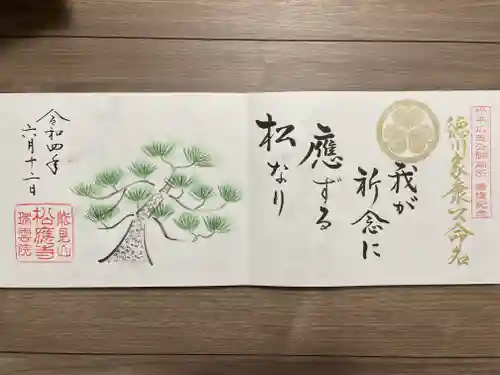 徳川家康公命名
我が
祈念に
應ずる
松なり
令和四年
六月十二日
能見山
松應寺
瑞雲院